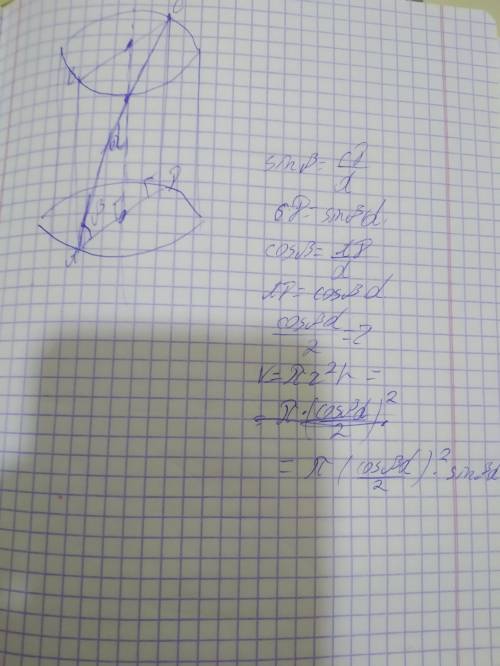 C
d
β
A
P
sinβ = CP/d
CP = sinβd
cosβ = AP/d
AP = cosβd
cosβd/2 = r
V = πr²h =
= π·(cosβd/2)²
= π(cosβd/2)²·sinβd